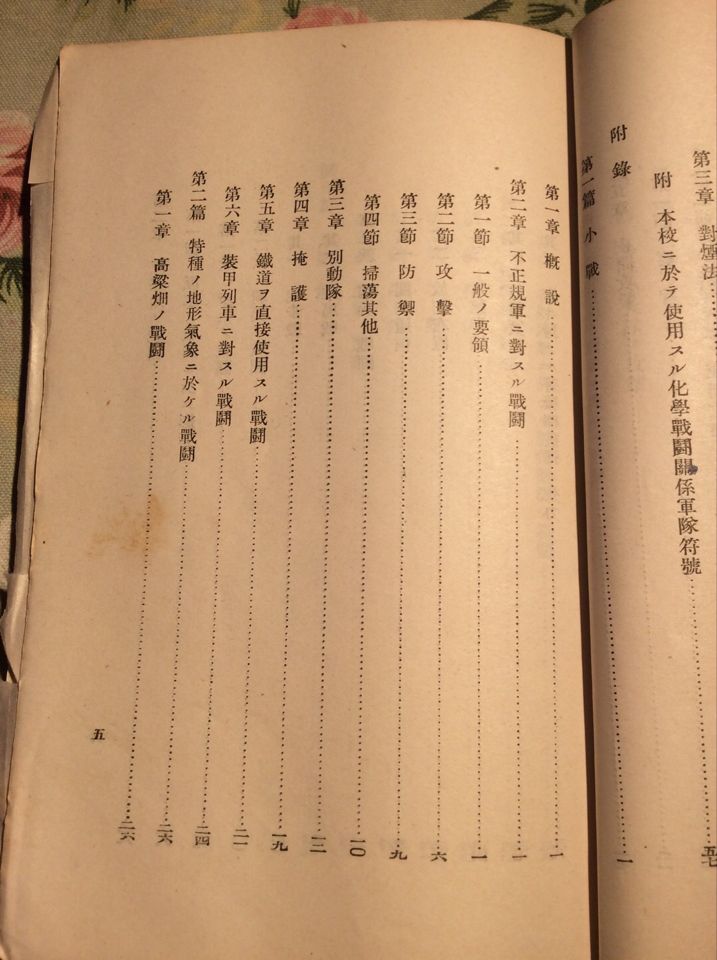 第三章　對煙法……五七
附　本校ニ於テ使用スル化學戰鬪關係軍隊符號……
附錄
第一篇　小戰……一
第一章　概說……一
第二章　不正規軍ニ對スル戰鬪……一
第一節　一般ノ要領……一
第二節　攻擊……六
第三節　防禦……九
第四節　掃蕩其他……一〇
第三章　別動隊……一二
第四章　掩護……一九
第五章　鐵道ヲ直接使用スル戰鬪……二一
第六章　裝甲列車ニ對スル戰鬪……二四
第二篇　特種ノ地形氣象ニ於ケル戰鬪……二六
第一章　高粱畑ノ戰鬪……二六
五